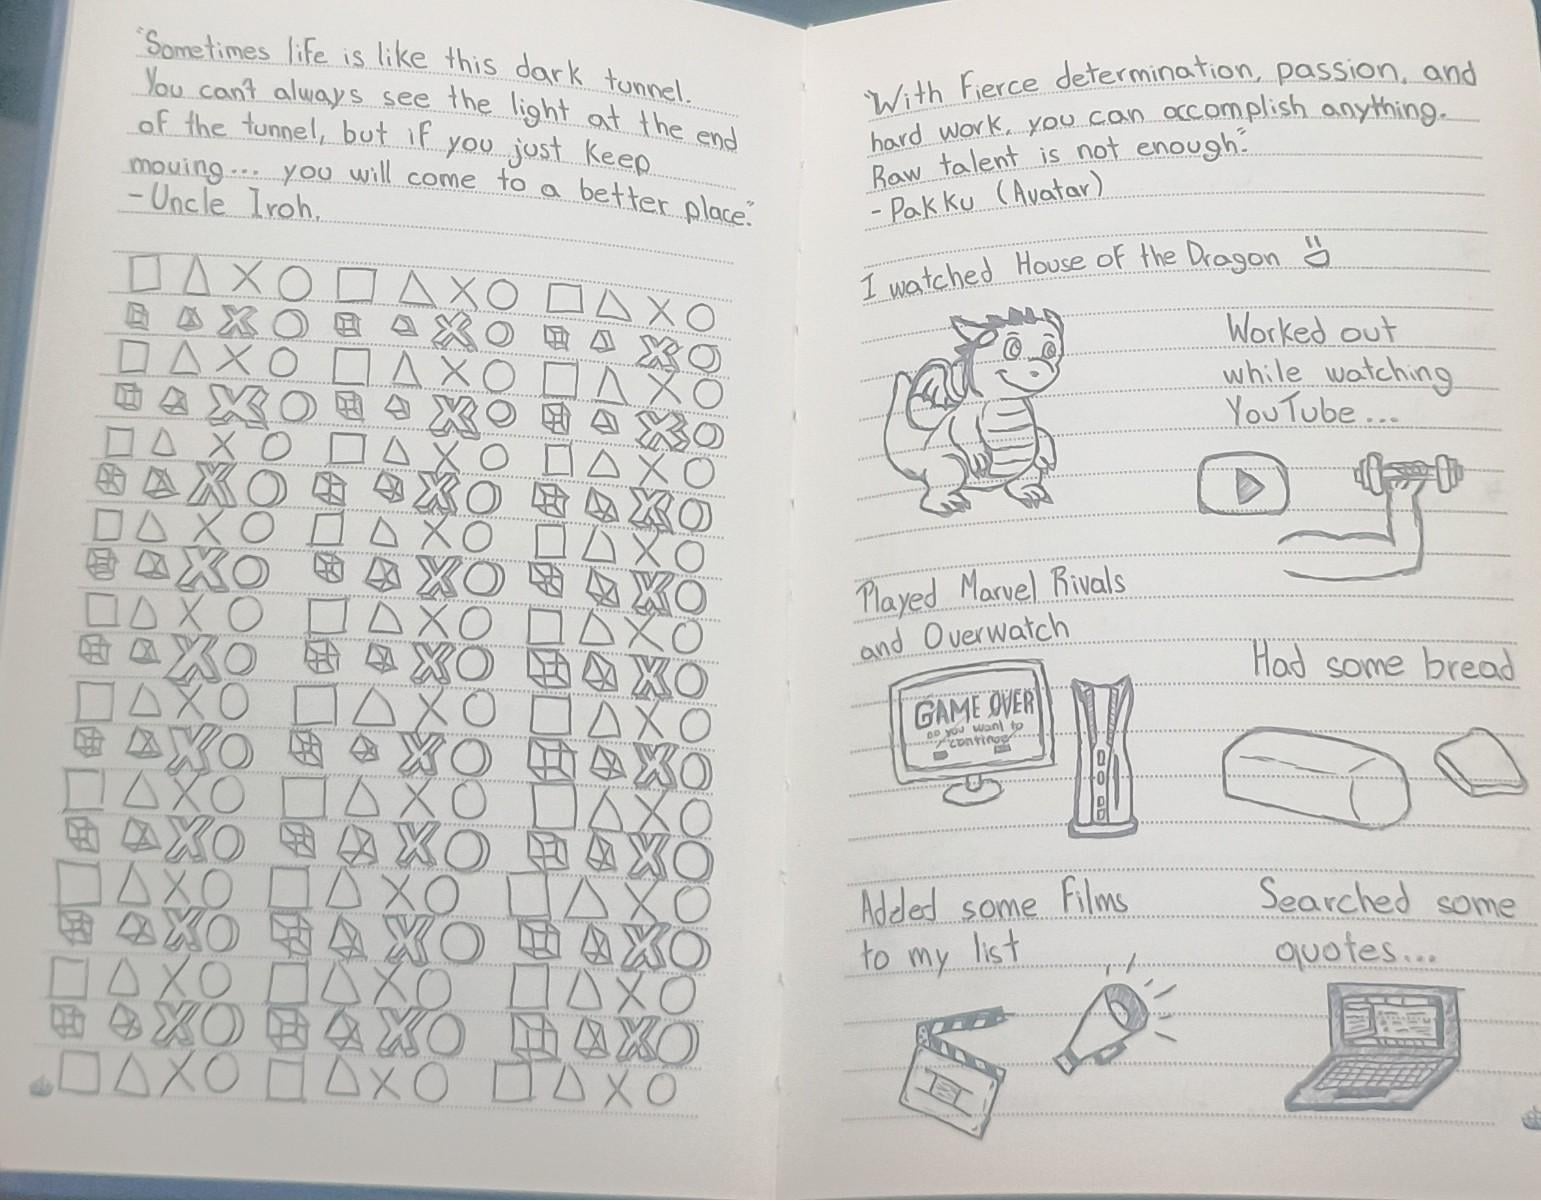 "Sometimes life is like this dark tunnel.
You can't always see the light at the end
of the tunnel, but if you just keep
moving... you will come to a better place."
- Uncle Iroh.
"With fierce determination, passion, and
hard work, you can accomplish anything.
Raw talent is not enough."
- Pakku (Avatar)
I watched House of the Dragon
Worked out
while watching
YouTube...
Played Marvel Rivals
and Overwatch
GAME OVER
Do you want to
continue
Had some bread
Added some films
to my list
Searched some
quotes...